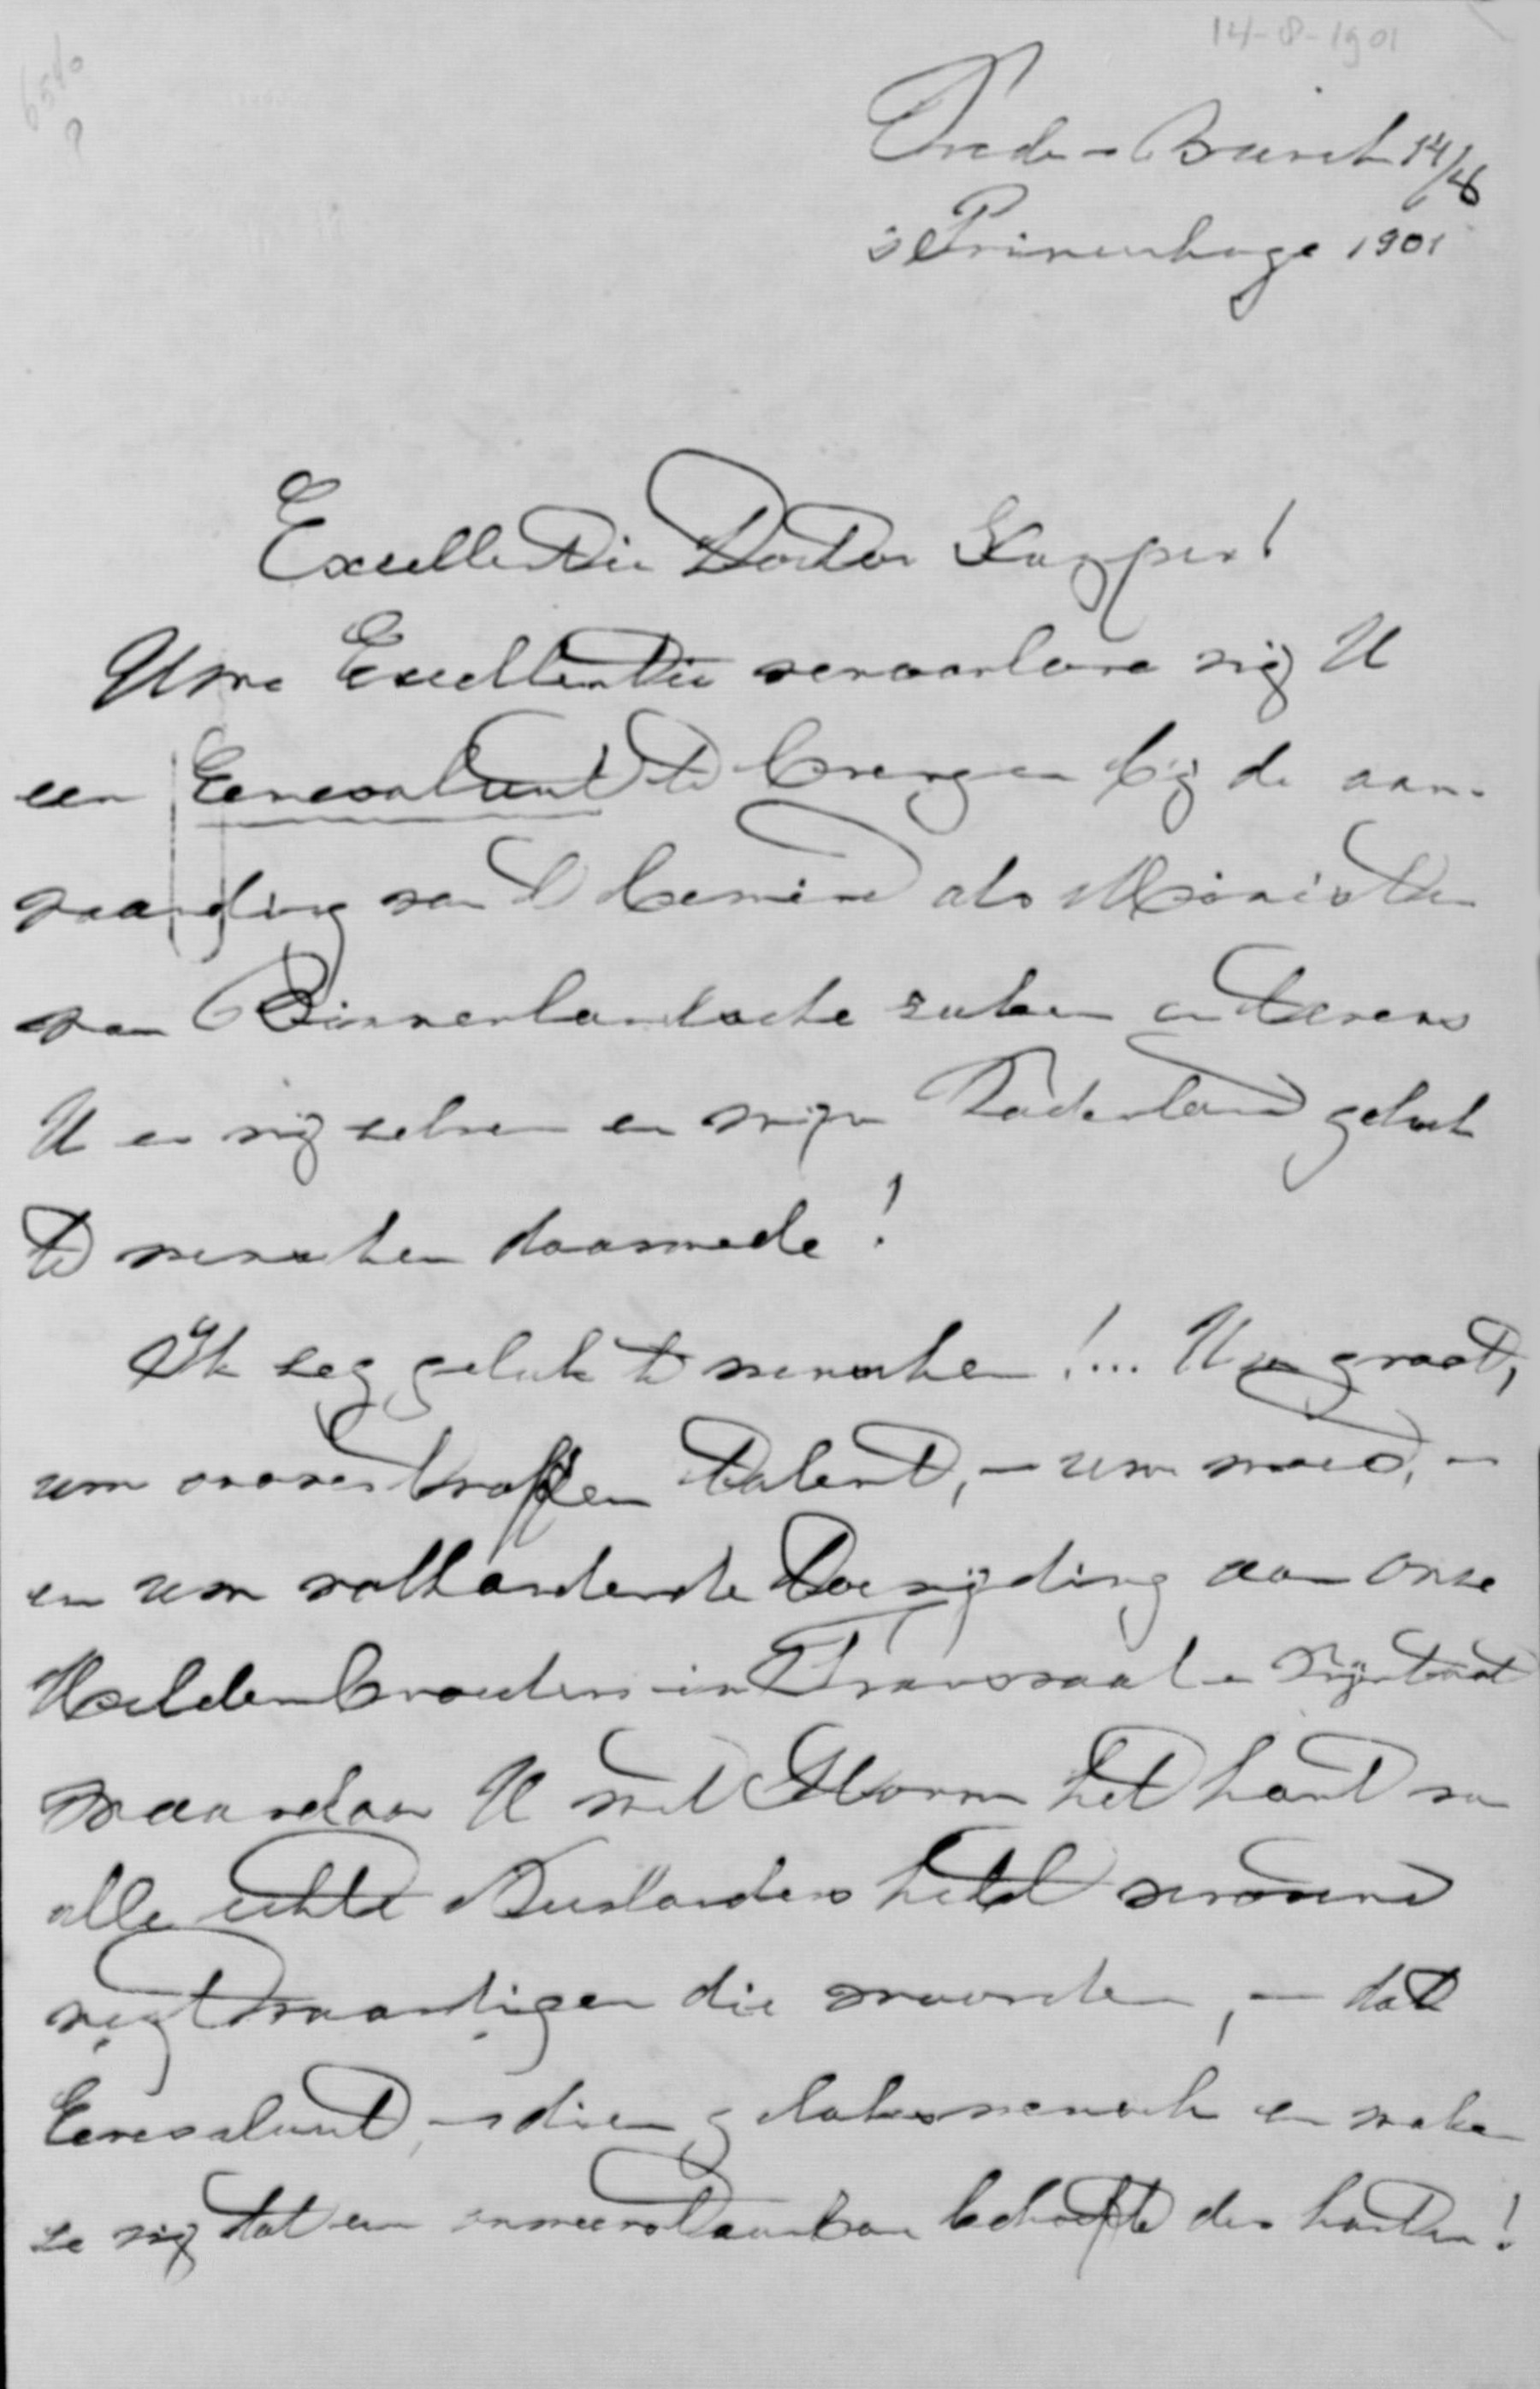 14-8-1901
6510
?
Vrede-Burch 14/8
's Prinsenhage 1901
Excellentie Doctor Kuyper!
Uwe Excellentie veroorlove mij U
een Eeresaluut te brengen bij de aan-
vaarding van 't bewind als Minister
van Binnenlandsche zaken en tevens
U en mij zelven en mijn Vaderland geluk
te wenschen daarmede!
Ik zeg geluk te wenschen!... Uw groot,
uw onovertroffen talent, – uw moed, –
en uw volhardende toewijding aan onze
Heldenbroeders in Transvaal en Vrijstaat
waardoor U met Storm het hart van
alle echte Neerlanders hebt veroverd
regtvaardigen die woorden, – dat
Eeresaluut, – dien gelukwensch en maken
ze mij tot een onweerstaanbare behoefte des harten!